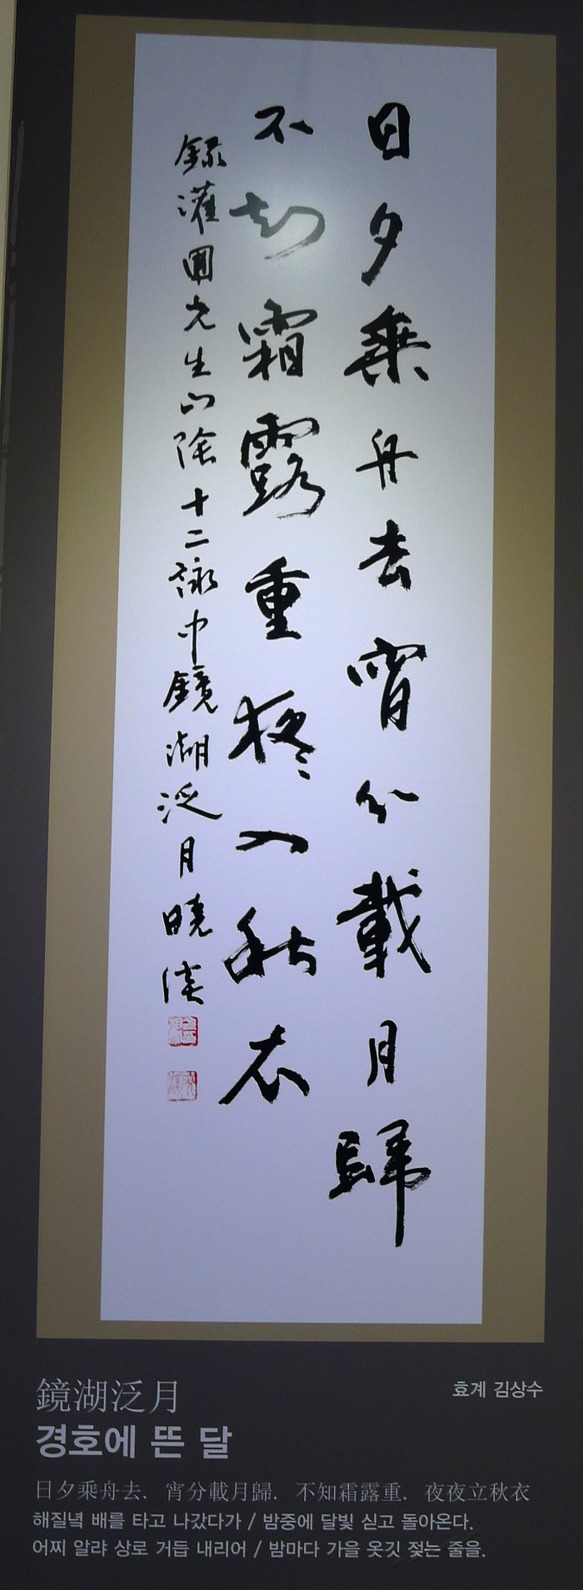 日夕乘舟去宵分載月歸
不知霜露重夜々入秋衣
錄灌圃先生山陰十二詠中鏡湖泛月 曉溪
鏡湖泛月
효계 김상수
경호에 뜬 달
日夕乘舟去. 宵分載月歸. 不知霜露重. 夜夜立秋衣
해질녘 배를 타고 나갔다가 / 밤중에 달빛 싣고 돌아온다.
어찌 알랴 상로 거듭 내리어 / 밤마다 가을 옷깃 젖는 줄을.